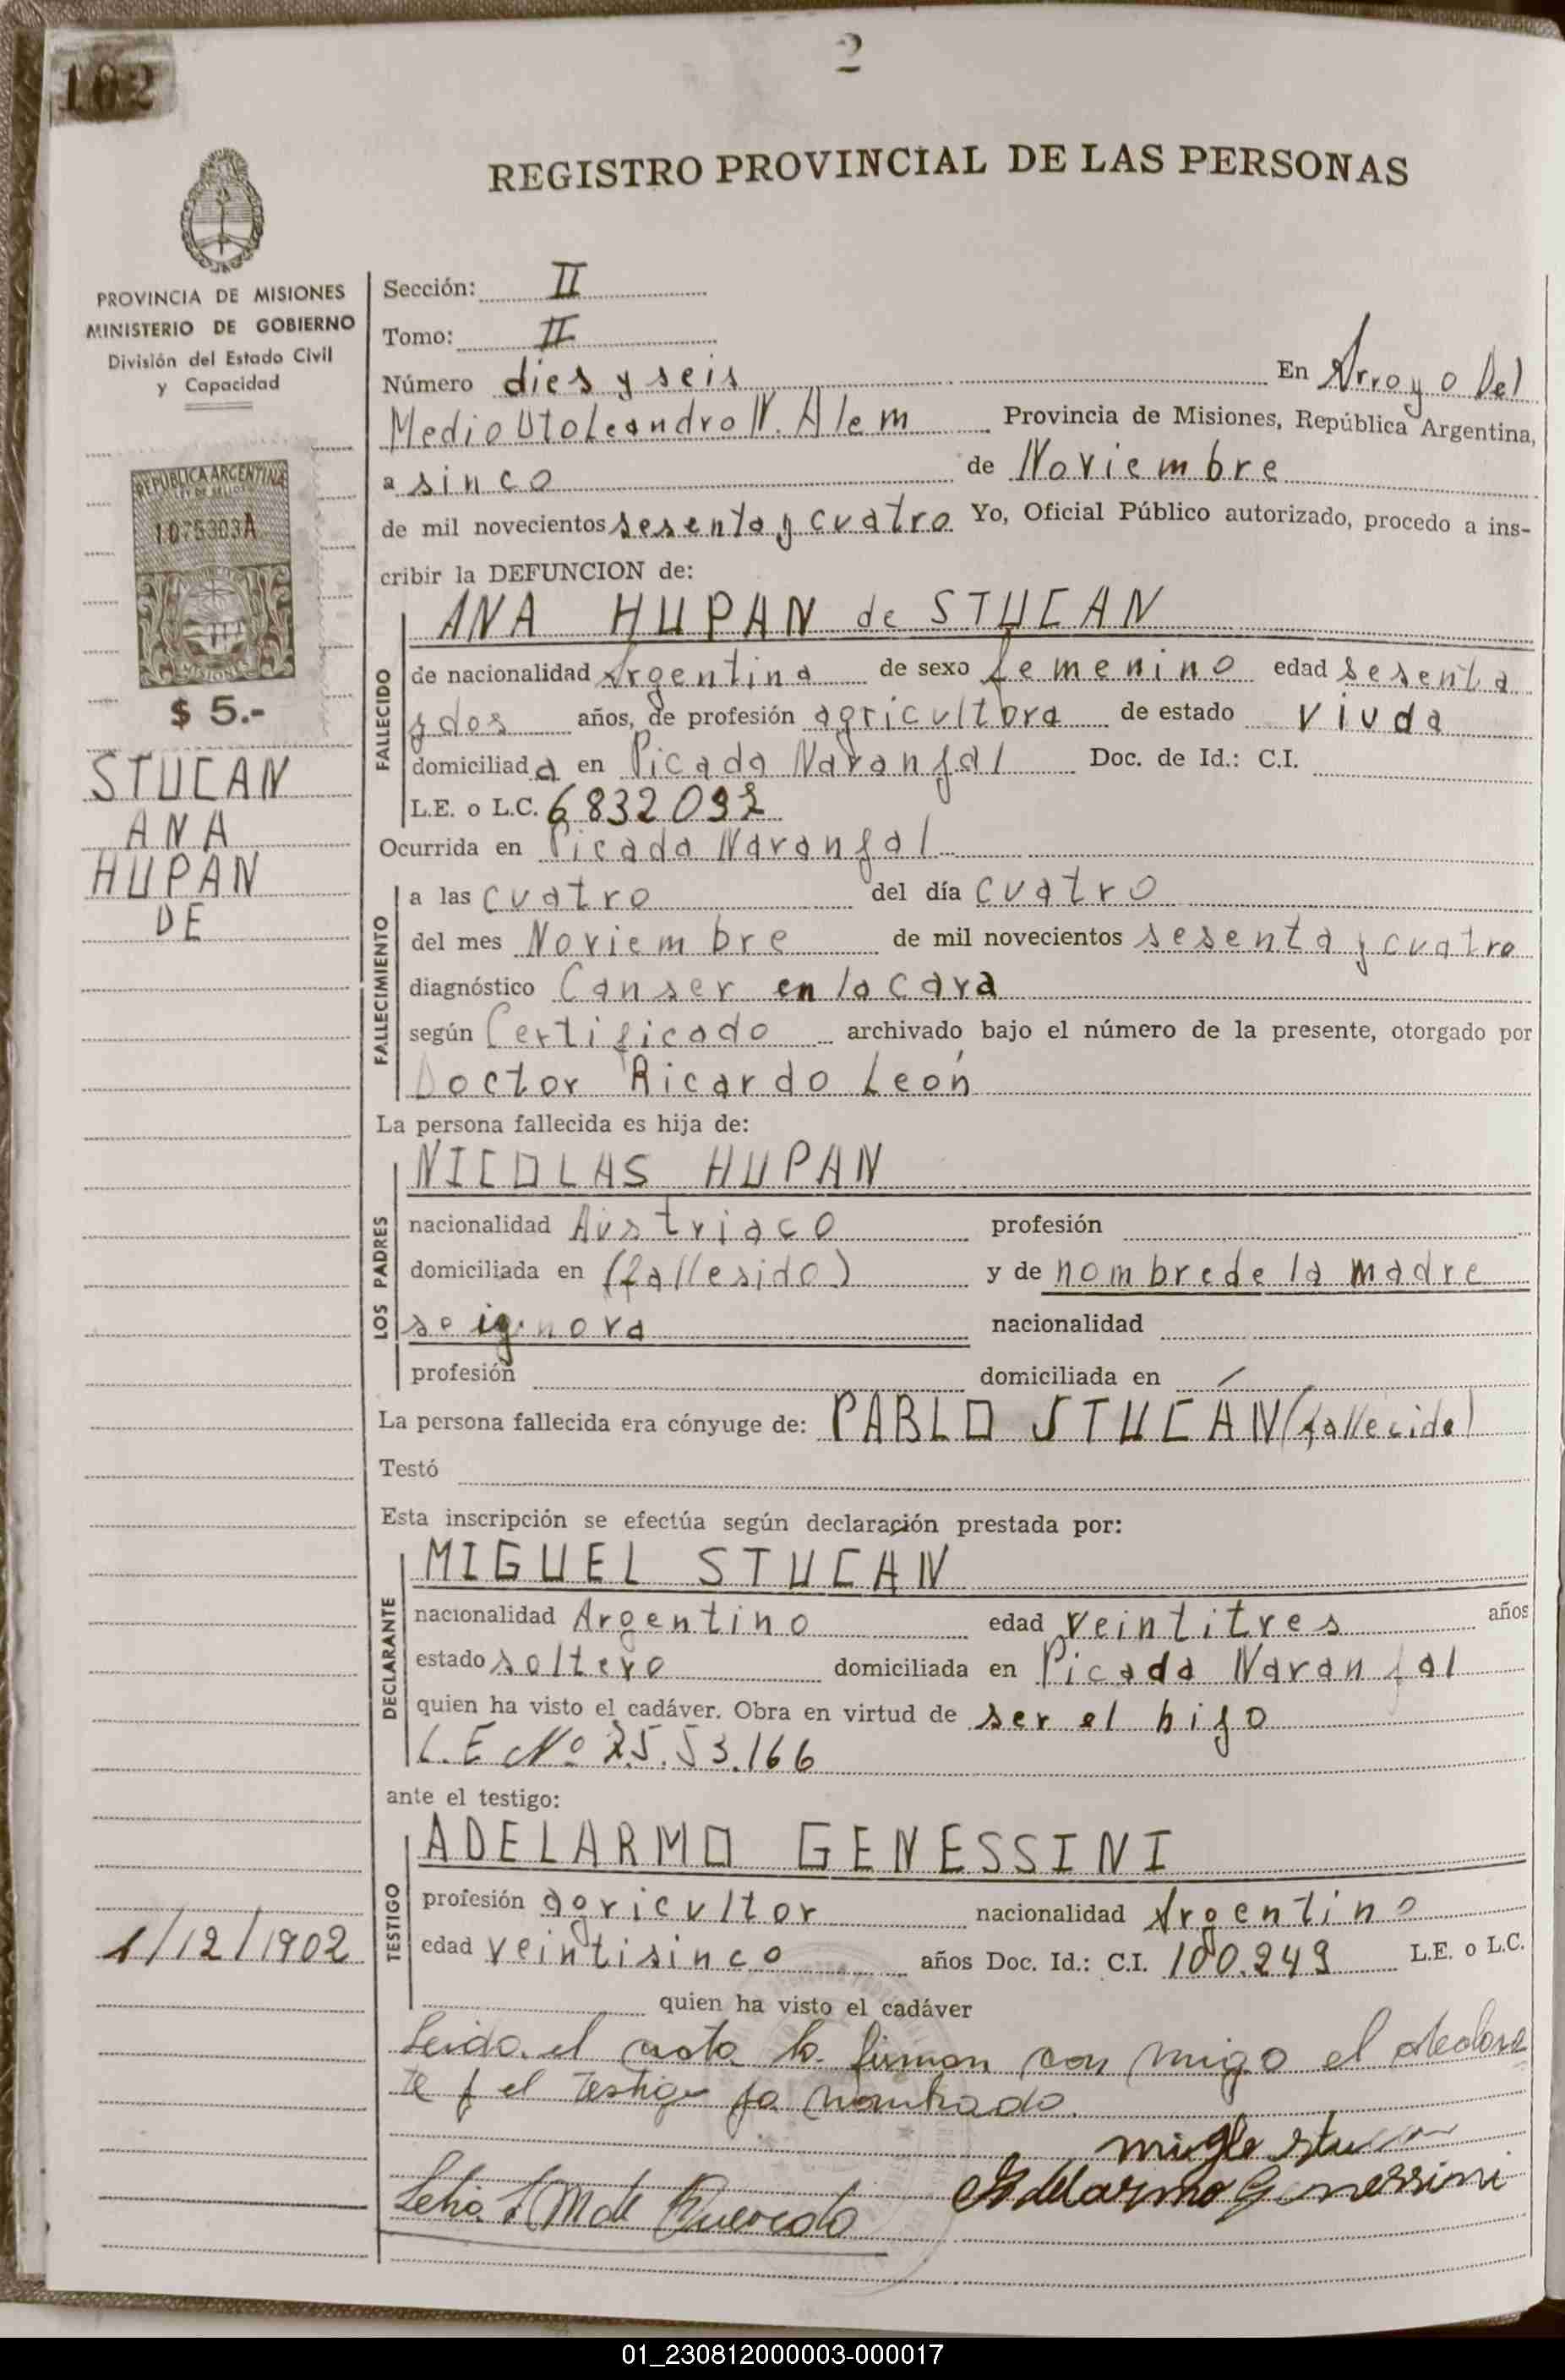 2
102
REGISTRO PROVINCIAL DE LAS PERSONAS
PROVINCIA DE MISIONES
MINISTERIO DE GOBIERNO
División del Estado Civil
y Capacidad
REPUBLICA ARGENTINA
LEY DE SELLOS
1075303A
MISIONES
$ 5.-
STUCAN
ANA
HUPAN
DE
1/12/1902
Sección: II
Tomo: II
Número dies y seis En Arroyo Del
Medio Dto Leandro N. Alem Provincia de Misiones, República Argentina,
a sinco de Noviembre
de mil novecientos sesenta y cuatro Yo, Oficial Público autorizado, procedo a ins-
cribir la DEFUNCION de:
FALLECIDO
ANA HUPAN de STUCAN
de nacionalidad Argentina de sexo femenino edad sesenta
y dos años, de profesión agricultora de estado viuda
domiciliada en Picada Naranjal Doc. de Id.: C.I.
L.E. o L.C. 6832092
Ocurrida en Picada Naranjal
FALLECIMIENTO
a las cuatro del día cuatro
del mes Noviembre de mil novecientos sesenta y cuatro
diagnóstico Canser en la cara
según Certificado archivado bajo el número de la presente, otorgado por
Doctor Ricardo León
La persona fallecida es hija de:
LOS PADRES
NICOLAS HUPAN
nacionalidad Austriaco profesión
domiciliada en (fallesido) y de nombre de la madre
se ignora nacionalidad
profesión domiciliada en
La persona fallecida era cónyuge de: PABLO STUCÁN (fallecido)
Testó
Esta inscripción se efectúa según declaración prestada por:
DECLARANTE
MIGUEL STUCAN
nacionalidad Argentino edad veintitres años
estado soltero domiciliada en Picada Naranjal
quien ha visto el cadáver. Obra en virtud de ser el hijo
L.E Nº 75.53.166
ante el testigo:
TESTIGO
ADELARMO GENESSINI
profesión agricultor nacionalidad Argentino
edad veintisinco años Doc. Id.: C.I. 100.249 L.E. o L.C.
quien ha visto el cadáver
Leida el acta la firman con migo el declaran
te y el testigo ja nombrado.
migle stucan
Adelarmo Genessini
01_230812000003-000017